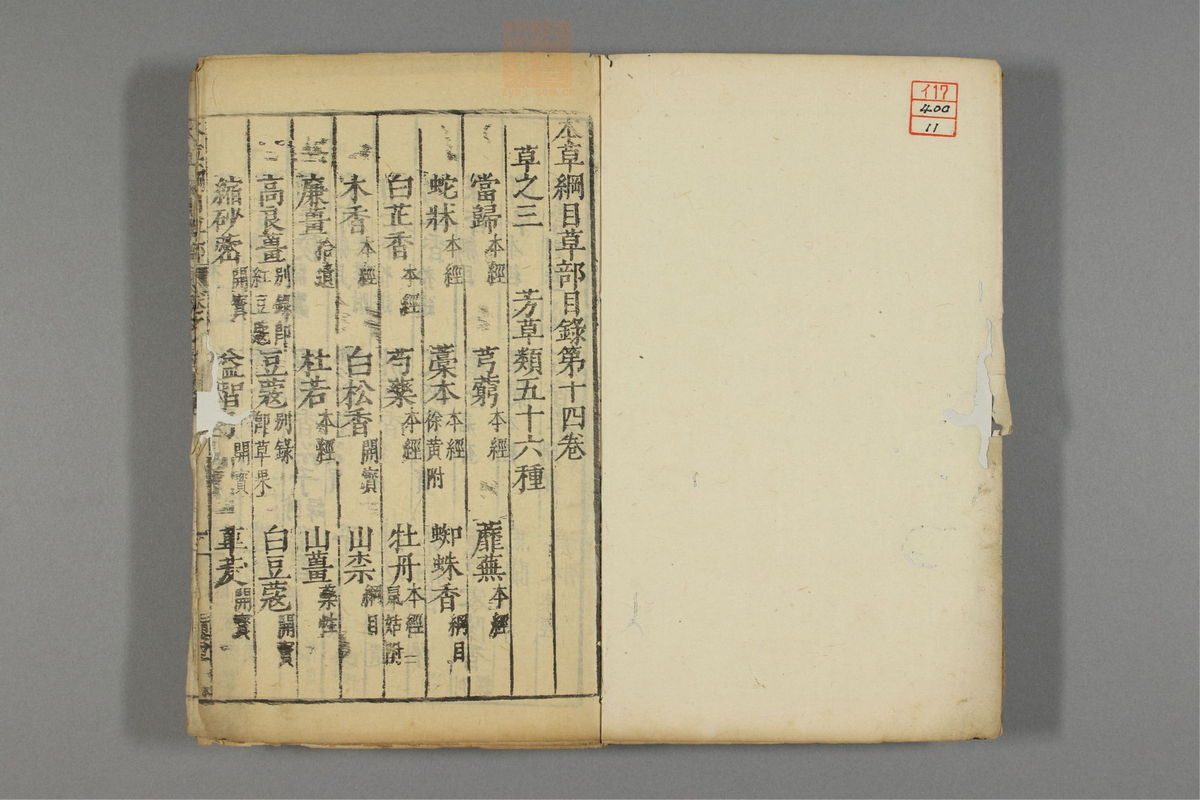 イ17
400
11
本草綱目草部目錄第十四卷
草之三　芳草類五十六種
當歸本經　芎藭本經　蘼蕪本經
蛇牀本經　藁本本經徐黃附　蜘蛛香綱目
白芷香本經　芍藥本經　牡丹本經鼠姑附
木香本經　白松香開寶　山柰綱目
廉薑拾遺　杜若本經　山薑藥性
高良薑別錄即紅豆蔻　豆蔻別錄即草果　白豆蔻開寶
縮砂蔤開寶　益智子開寶　蓽茇開寶